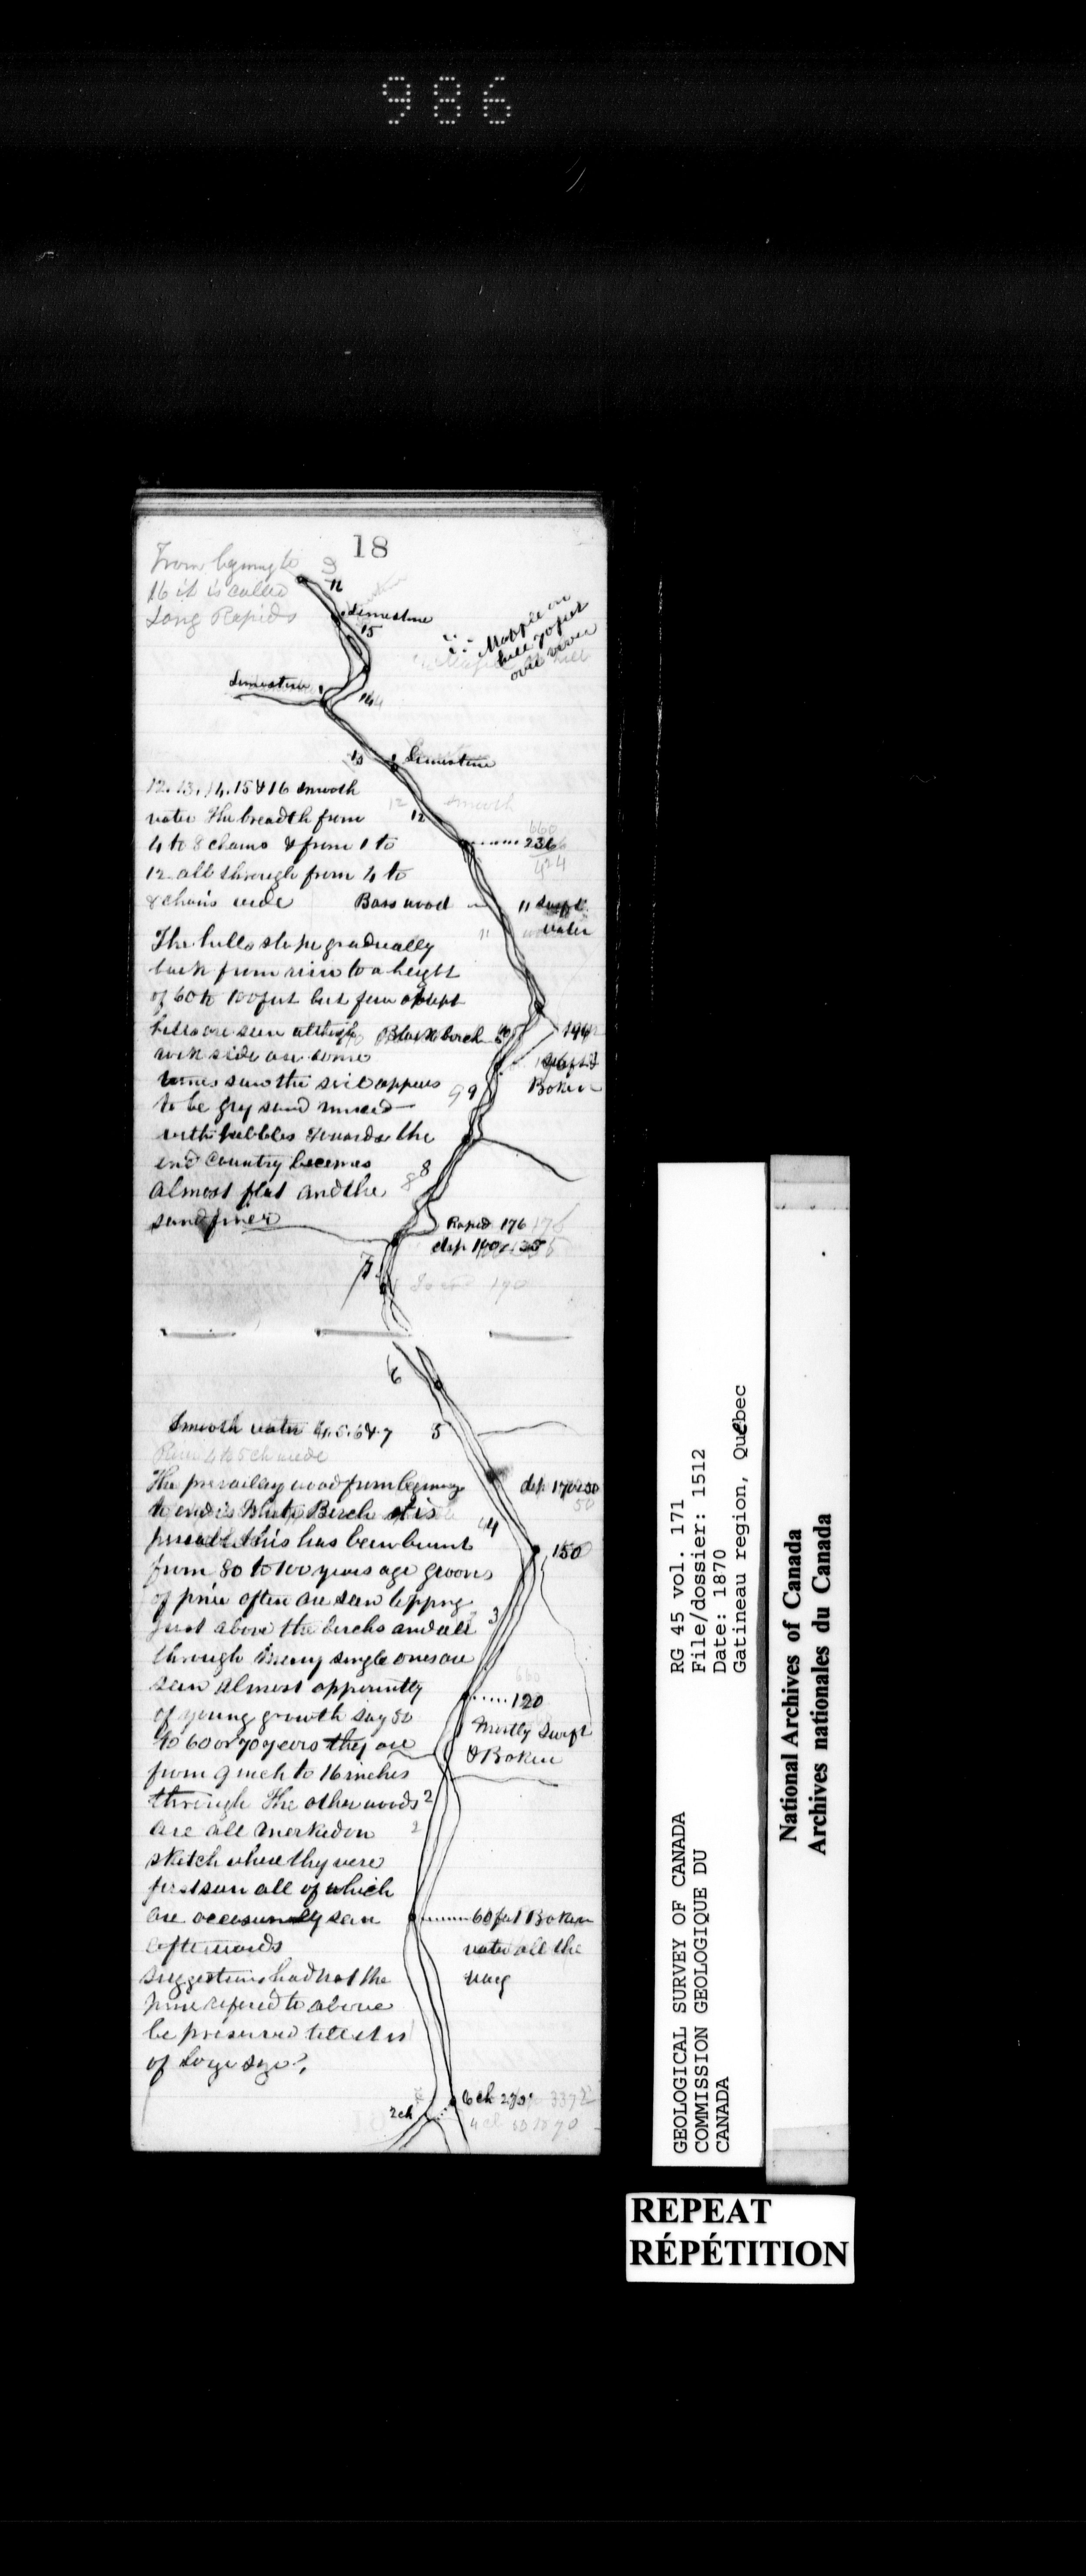 986
18
From begining to
16 it is called
Long Rapids
Limestone
15
Mapple on
hill 70 feet
over river
Limestone
14
13
Limestone
12. 13. 14. 15 & 16 smooth
water The breadth from
4 to 8 chains & from 1 to
12 all through from 4 to
8 chains wide
12
smooth
660
236
424
Bass wood
11 Swift
water
The hills slope gradually
back from river to a height
of 60 to 100 feet but few abrupt
hills are seen although
Black birch
10
144
rock side are some
times seen the soil appears
Swift &
Boken
9
to be grey sand mixed
with pebbles towards the
end country becomes
8
almost flat and the
sand finer
Rapid 176
dep 140
7
6
Smooth water 4. 5. 6 & 7
5
River 4 to 5 ch wide
The prevailing wood from begining
dep 170
50
to end is White Birch it is
4
this has been burnt
150
from 80 to 100 years ago grooves
of pine often are seen topping
just above the birchs and all
3
through many single ones are
seen almost apparently
120
of young growth say 50
Mostly Swift
to 60 or 70 years they are
& Boken
from 9 inch to 16 inches
through The other woods
2
are all marked on
sketch where they were
first seen all of which
are occasionally seen
60 feet Boken
water all the
way
afterwards
suggestions had not the
pine refered to above
be preserved till it is
of large size?
2 ch
6 ch
GEOLOGICAL SURVEY OF CANADA
COMMISSION GEOLOGIQUE DU
CANADA
RG 45 vol. 171
File/dossier: 1512
Date: 1870
Gatineau region, Québec
National Archives of Canada
Archives nationales du Canada
REPEAT
RÉPÉTITION